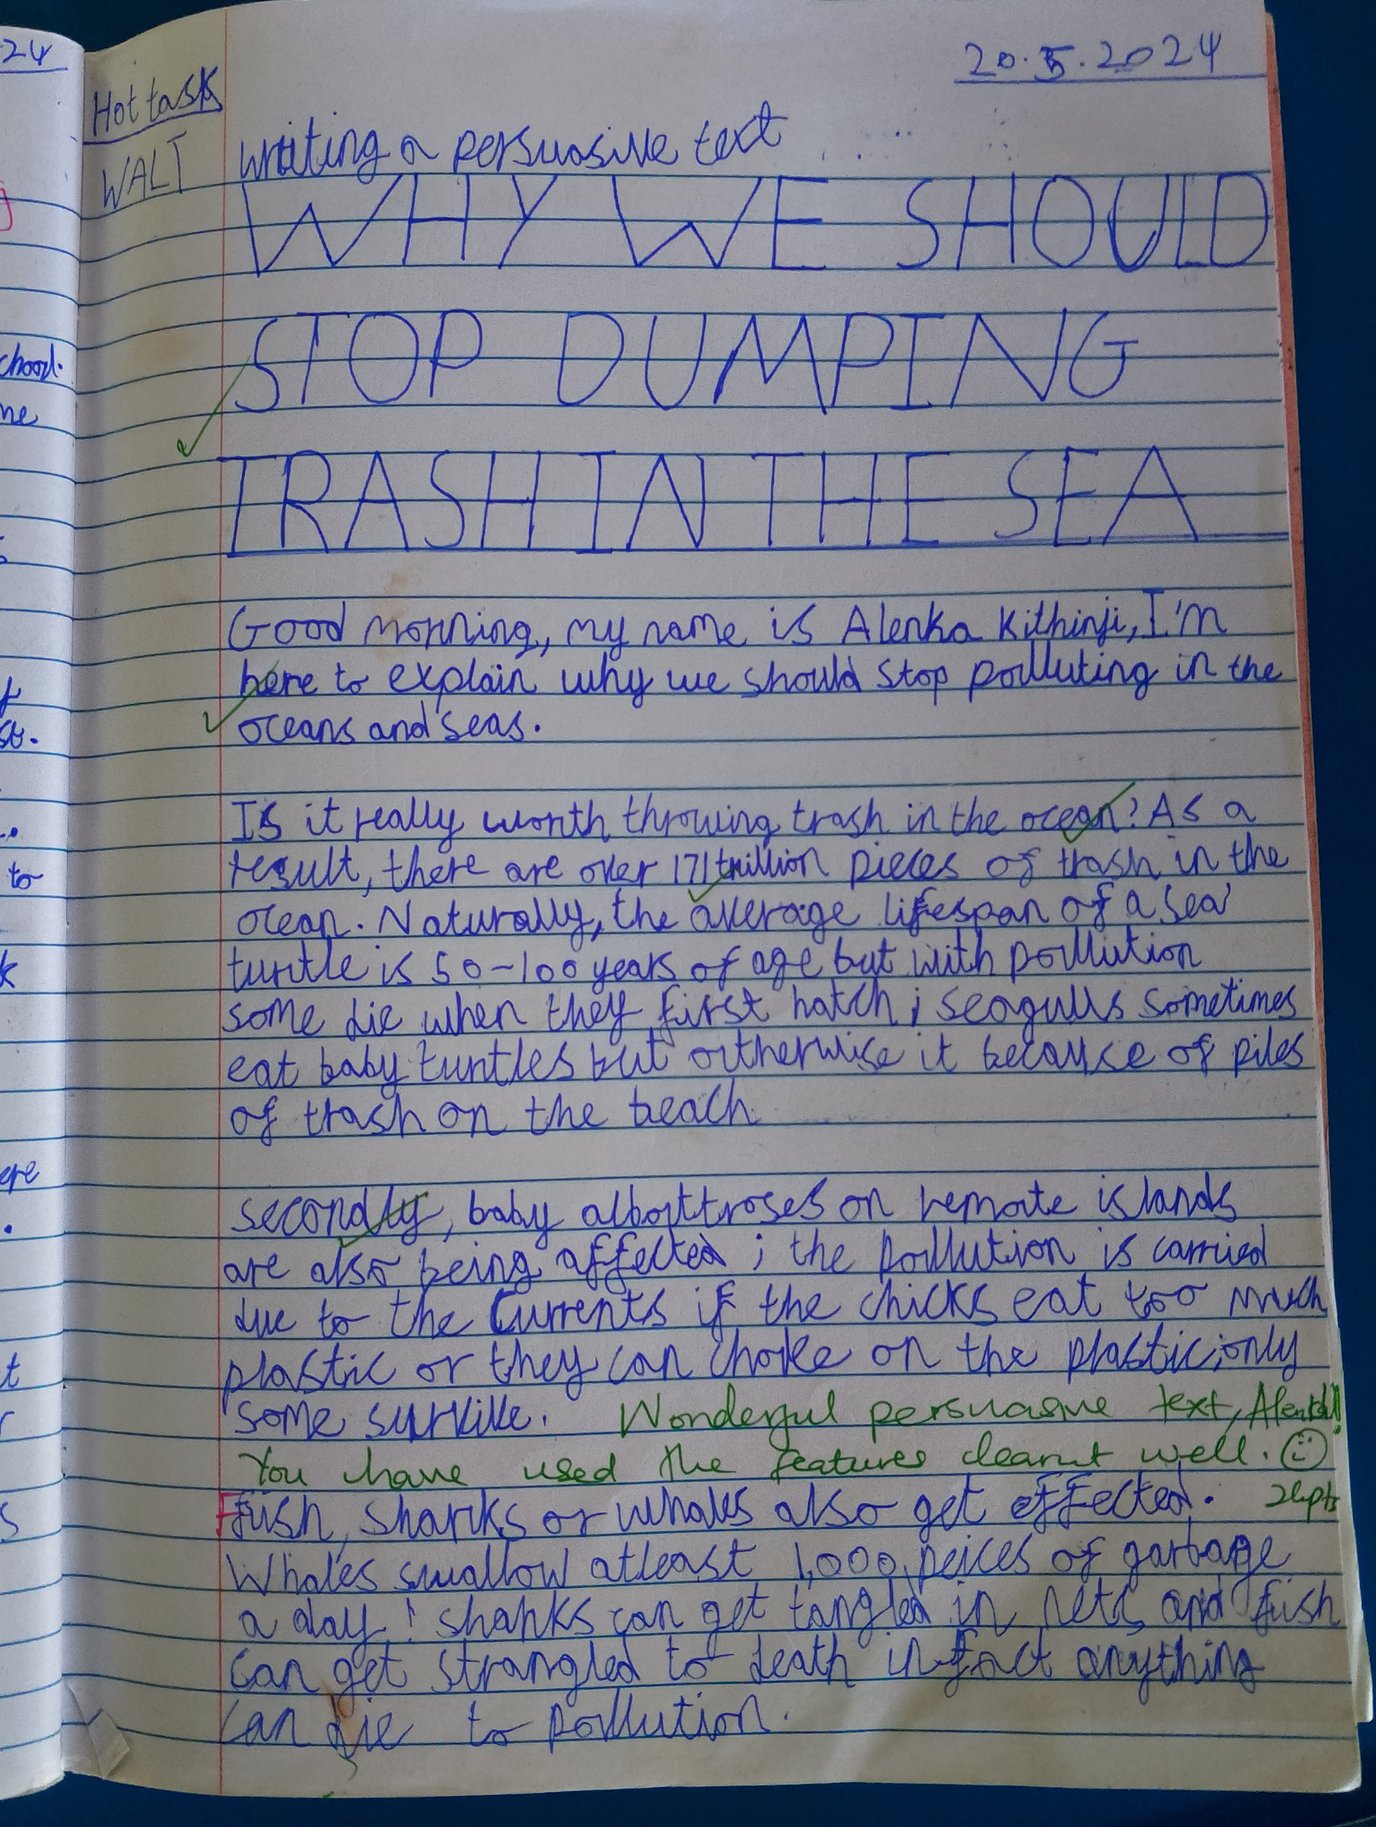 24
20.5.2024
Hot task
WALT writing a persuasive text
WHY WE SHOULD
STOP DUMPING
TRASH IN THE SEA
Good morning, my name is Alenka Kithinji, I'm
here to explain why we should stop polluting in the
oceans and seas.
Is it really worth throwing trash in the ocean? As a
result, there are over 171 trillion pieces of trash in the
ocean. Naturally, the average lifespan of a sea
turtle is 50-100 years of age but with pollution
some die when they first hatch; seagulls sometimes
eat baby turtles but ortherwise it because of piles
of trash on the beach
secondly, baby albottroses on remote islands
are also being affected; the pollution is carried
due to the currents if the chicks eat too much
plastic or they can choke on the plastic; only
some survive. Wonderful persuasive text, Alenka!
You have used the features learnt well.
Fish, sharks or whales also get effected. 2hpts
Whales swallow atleast 1,000 peices of garbage
a day! sharks can get tangled in nets and fish
can get strangled to death in fact anything
can die to pollution.